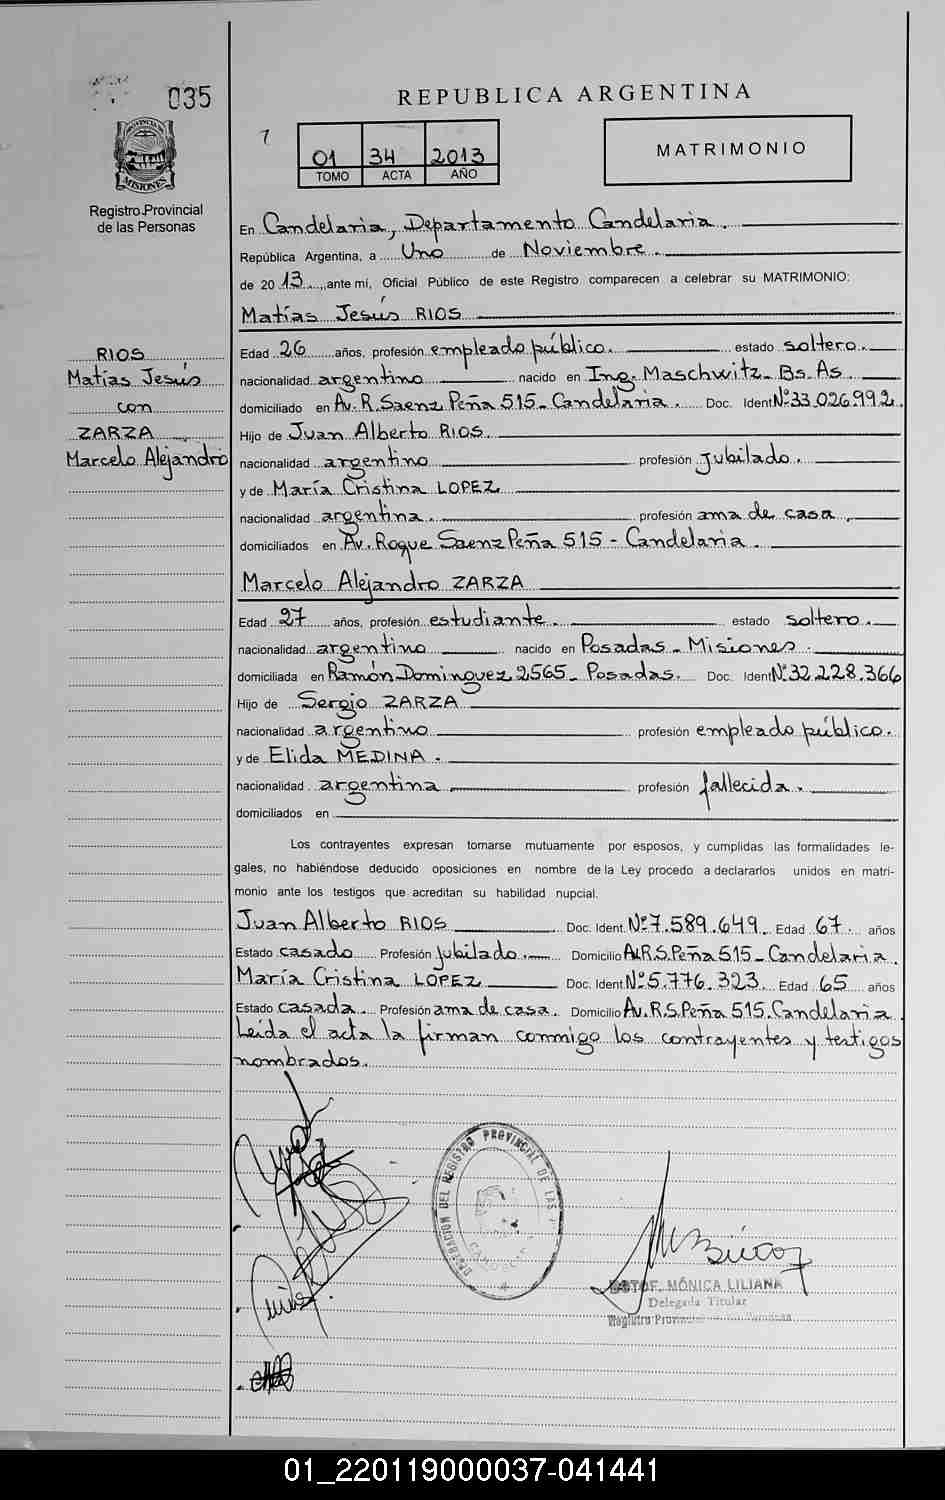 035
PROVINCIA DE
MISIONES
Registro Provincial
de las Personas
REPUBLICA ARGENTINA
01 34 2013
TOMO ACTA AÑO
MATRIMONIO
RIOS
Matías Jesús
con
ZARZA
Marcelo Alejandro
En Candelaria, Departamento Candelaria.
República Argentina, a Uno de Noviembre.
de 2013, ante mí, Oficial Público de este Registro comparecen a celebrar su MATRIMONIO:
Matías Jesús RIOS
Edad 26 años, profesión empleado público. estado soltero.
nacionalidad argentino nacido en Ing. Maschwitz - Bs. As.
domiciliado en Av. R. Saenz Peña 515 - Candelaria. Doc. Ident Nº 33.026.992.
Hijo de Juan Alberto RIOS.
nacionalidad argentino profesión jubilado.
y de María Cristina LOPEZ
nacionalidad argentina. profesión ama de casa.
domiciliados en Av. Roque Saenz Peña 515 - Candelaria.
Marcelo Alejandro ZARZA
Edad 27 años, profesión estudiante. estado soltero.
nacionalidad argentino nacido en Posadas - Misiones.
domiciliada en Ramón Dominguez 2565 - Posadas. Doc. Ident Nº 32.228.366
Hijo de Sergio ZARZA
nacionalidad argentino profesión empleado público.
y de Elida MEDINA.
nacionalidad argentina profesión fallecida.
domiciliados en
Los contrayentes expresan tomarse mutuamente por esposos, y cumplidas las formalidades le-
gales, no habiéndose deducido oposiciones en nombre de la Ley procedo a declararlos unidos en matri-
monio ante los testigos que acreditan su habilidad nupcial.
Juan Alberto RIOS Doc. Ident. Nº 7.589.649. Edad 67 años
Estado casado Profesión jubilado. Domicilio Av. R.S. Peña 515 - Candelaria.
María Cristina LOPEZ Doc. Ident. Nº 5.776.323. Edad 65 años
Estado casada. Profesión ama de casa. Domicilio Av. R.S. Peña 515. Candelaria.
Leída el acta la firman conmigo los contrayentes y testigos
nombrados.
DELEGACION DEL REGISTRO PROVINCIAL DE LAS
MÓNICA LILIANA
Delegada Titular
Registro Provincial
01_220119000037-041441